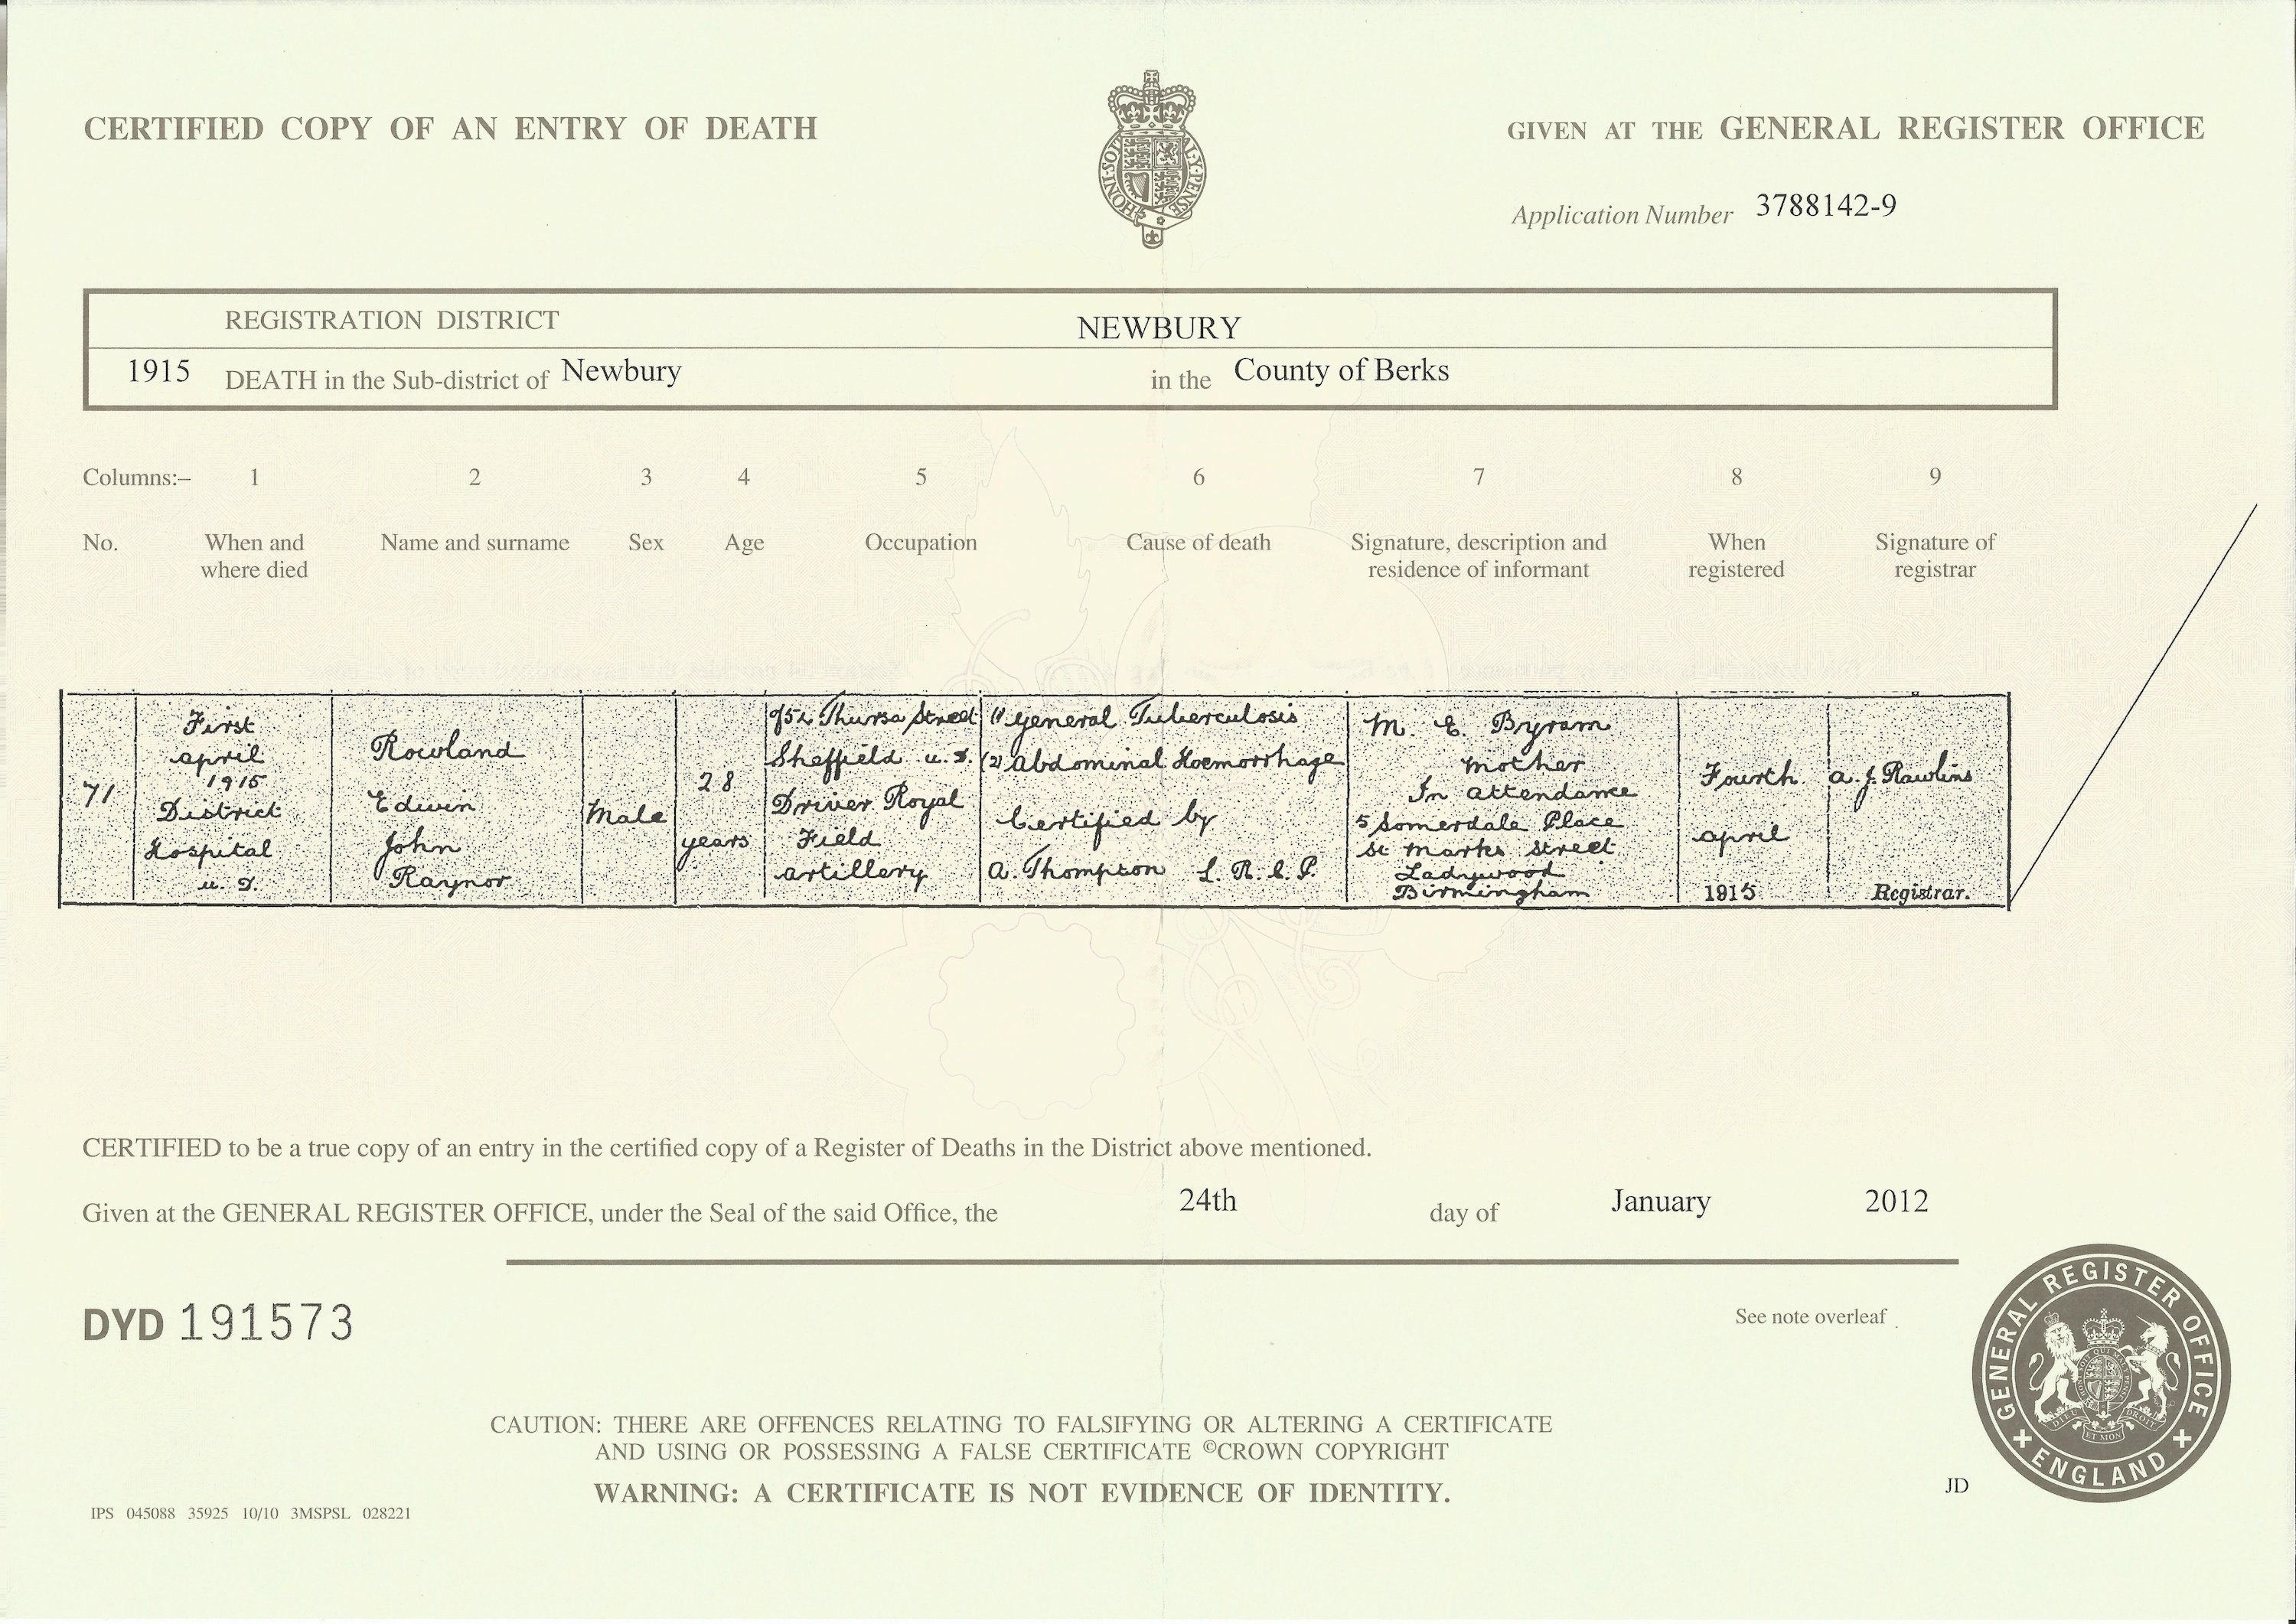 CERTIFIED COPY OF AN ENTRY OF DEATH
GIVEN AT THE GENERAL REGISTER OFFICE
Application Number 3788142-9
REGISTRATION DISTRICT NEWBURY
1915 DEATH in the Sub-district of Newbury in the County of Berks
Columns:– 1 2 3 4 5 6 7 8 9
No. When and where died Name and surname Sex Age Occupation Cause of death Signature, description and residence of informant When registered Signature of registrar
71
First
april
1915
District
Hospital
u. D.
Rowland
Edwin
John
Raynor
Male
28
years
of 52 Thursa Street
Sheffield u. D.
Driver Royal
Field
artillery
(1) General Tuberculosis
(2) Abdominal Hoemorrhage
Certified by
A. Thompson L. R. C. P.
M. E. Byram
Mother
In attendance
5 Somerdale Place
St Marks Street
Ladywood
Birmingham
Fourth
april
1915
A. J. Rawlins
Registrar.
CERTIFIED to be a true copy of an entry in the certified copy of a Register of Deaths in the District above mentioned.
Given at the GENERAL REGISTER OFFICE, under the Seal of the said Office, the 24th day of January 2012
DYD 191573
See note overleaf
CAUTION: THERE ARE OFFENCES RELATING TO FALSIFYING OR ALTERING A CERTIFICATE
AND USING OR POSSESSING A FALSE CERTIFICATE ©CROWN COPYRIGHT
WARNING: A CERTIFICATE IS NOT EVIDENCE OF IDENTITY.
IPS 045088 35925 10/10 3MSPSL 028221
JD
GENERAL REGISTER OFFICE
ENGLAND